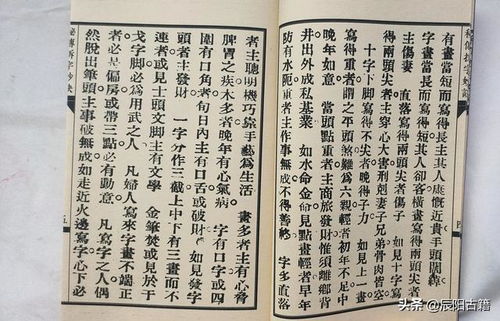 有畫當短而寫得長主其人慷慨近貴手頭闊綽
字畫當長而寫得短其人卻客橫畫寫得兩頭尖者
主傷妻　直落寫得兩頭尖者傷子　如見十字寫
得兩頭尖者主穿心大害刑剋妻子兄弟骨肉皆空
十字下脚寫得不尖者晚得子力　如見上一畫
寫得重者謂之平頭煞難爲六親輕者初年不足中
晚年如意　當頭點重者主商旅發財惟須離鄉背
井出外成私基業　如水命金命見點畫輕者早年
防有水阨重者主作事無成不得善終　字多直落
者主聰明機巧靠手藝爲生活　畫多者主有心脅
脾胃之疾木多者晚年有心氣病　字有口字或四
圍有口角者旬日內主有口舌或破財　如見發字
頭者主發財　一字分作三截上中下有三畫而不
連者或見士頭文脚主有文學　金筆焚或見於千
戈字脚必爲用武之人　凡婦人寫來字畫不端正
者必是偏房或帶三點必有動意　凡寫字之人偶
然脫出筆頭主事破無成如走近火邊寫字心下必
秘傳拆字妙訣
五
头条@辰阳古籍